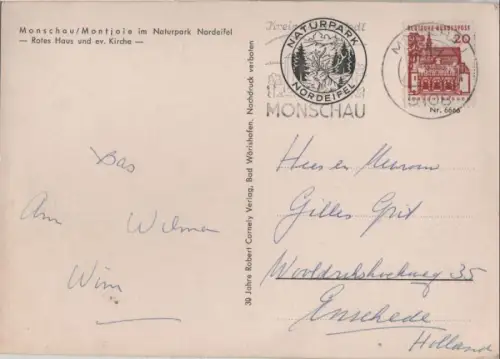 Monschau/Montjoie im Naturpark Nordeifel
— Rotes Haus und ev. Kirche —
Bas
Ann Wilma
Wim
30 Jahre Robert Cornely Verlag, Bad Wörishofen, Nachdruck verboten
NATURPARK
NORDEIFEL
MONSCHAU
DEUTSCHE BUNDESPOST
20
5108
Nr. 6666
Heer en Mevrouw
Gilles
35
Enschede
Holland